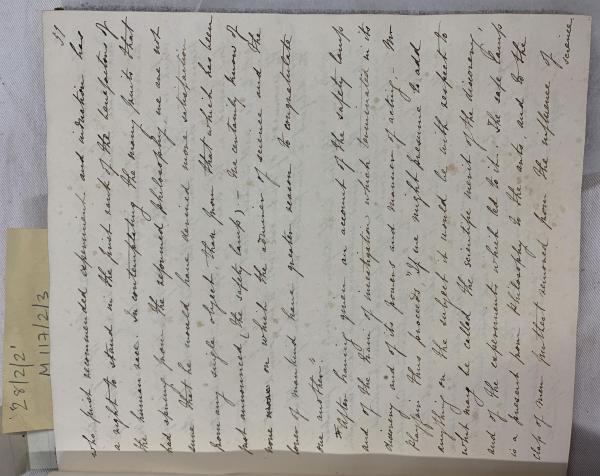 51
who first recommended experiment and induction has
a right to stand in the first rank of the benefactors of
the human race. In contemplating the many fruits that
had sprung from the reformed philosophy we are not
sure that he would have derived more satisfaction
from any single object than from that which has been
just announced (the safety lamp) — We certainly know of
none on which the admirer of science and the
lover of mankind have greater reason to congratulate
one another"
After having given an account of the safety lamp
and of the train of investigation which terminated in its
discovery and of its powers and manner of acting. Mr
Playfair thus proceeds "If we might presume to add
anything on the subject it would be with respect to
what may be called the scientific merit of the discovery,
and of the experiments which led to it. The safe lamp
is a present from Philosophy to the arts and to the
class of men furthest removed from the influence of
science
'28/2/2'
M117/2/3